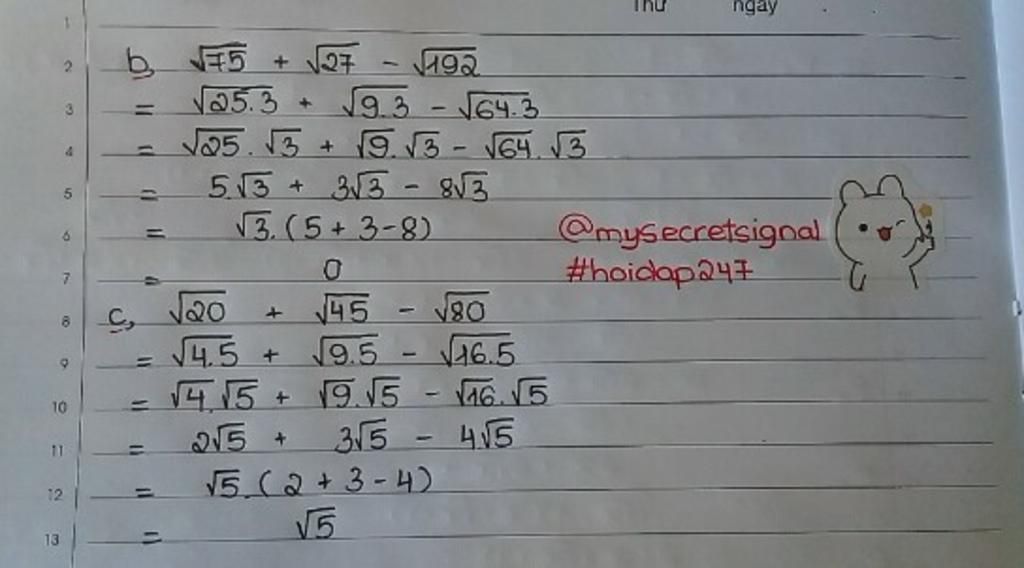 Thứ ngày . .
1
2 b, √75 + √27 - √192
3 = √25.3 + √9.3 - √64.3
4 = √25.√3 + √9.√3 - √64.√3
5 = 5.√3 + 3√3 - 8√3
6 = √3.(5 + 3 - 8) @mysecretsignal
7 = 0 #hoidap247
8 c, √20 + √45 - √80
9 = √4.5 + √9.5 - √16.5
10 = √4.√5 + √9.√5 - √16.√5
11 = 2√5 + 3√5 - 4√5
12 = √5.(2 + 3 - 4)
13 = √5